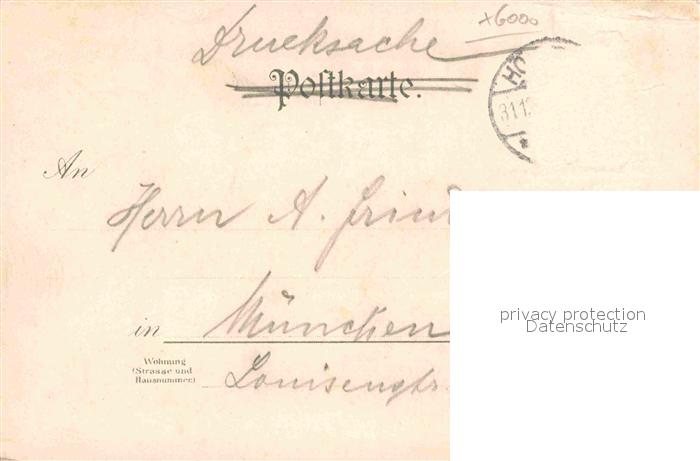 x6000
Drucksache
Postkarte.
31.12
An
Herrn A.
in München
Wohnung
(Strasse und
Hausnummer)
Louisenstr.
privacy protection
Datenschutz